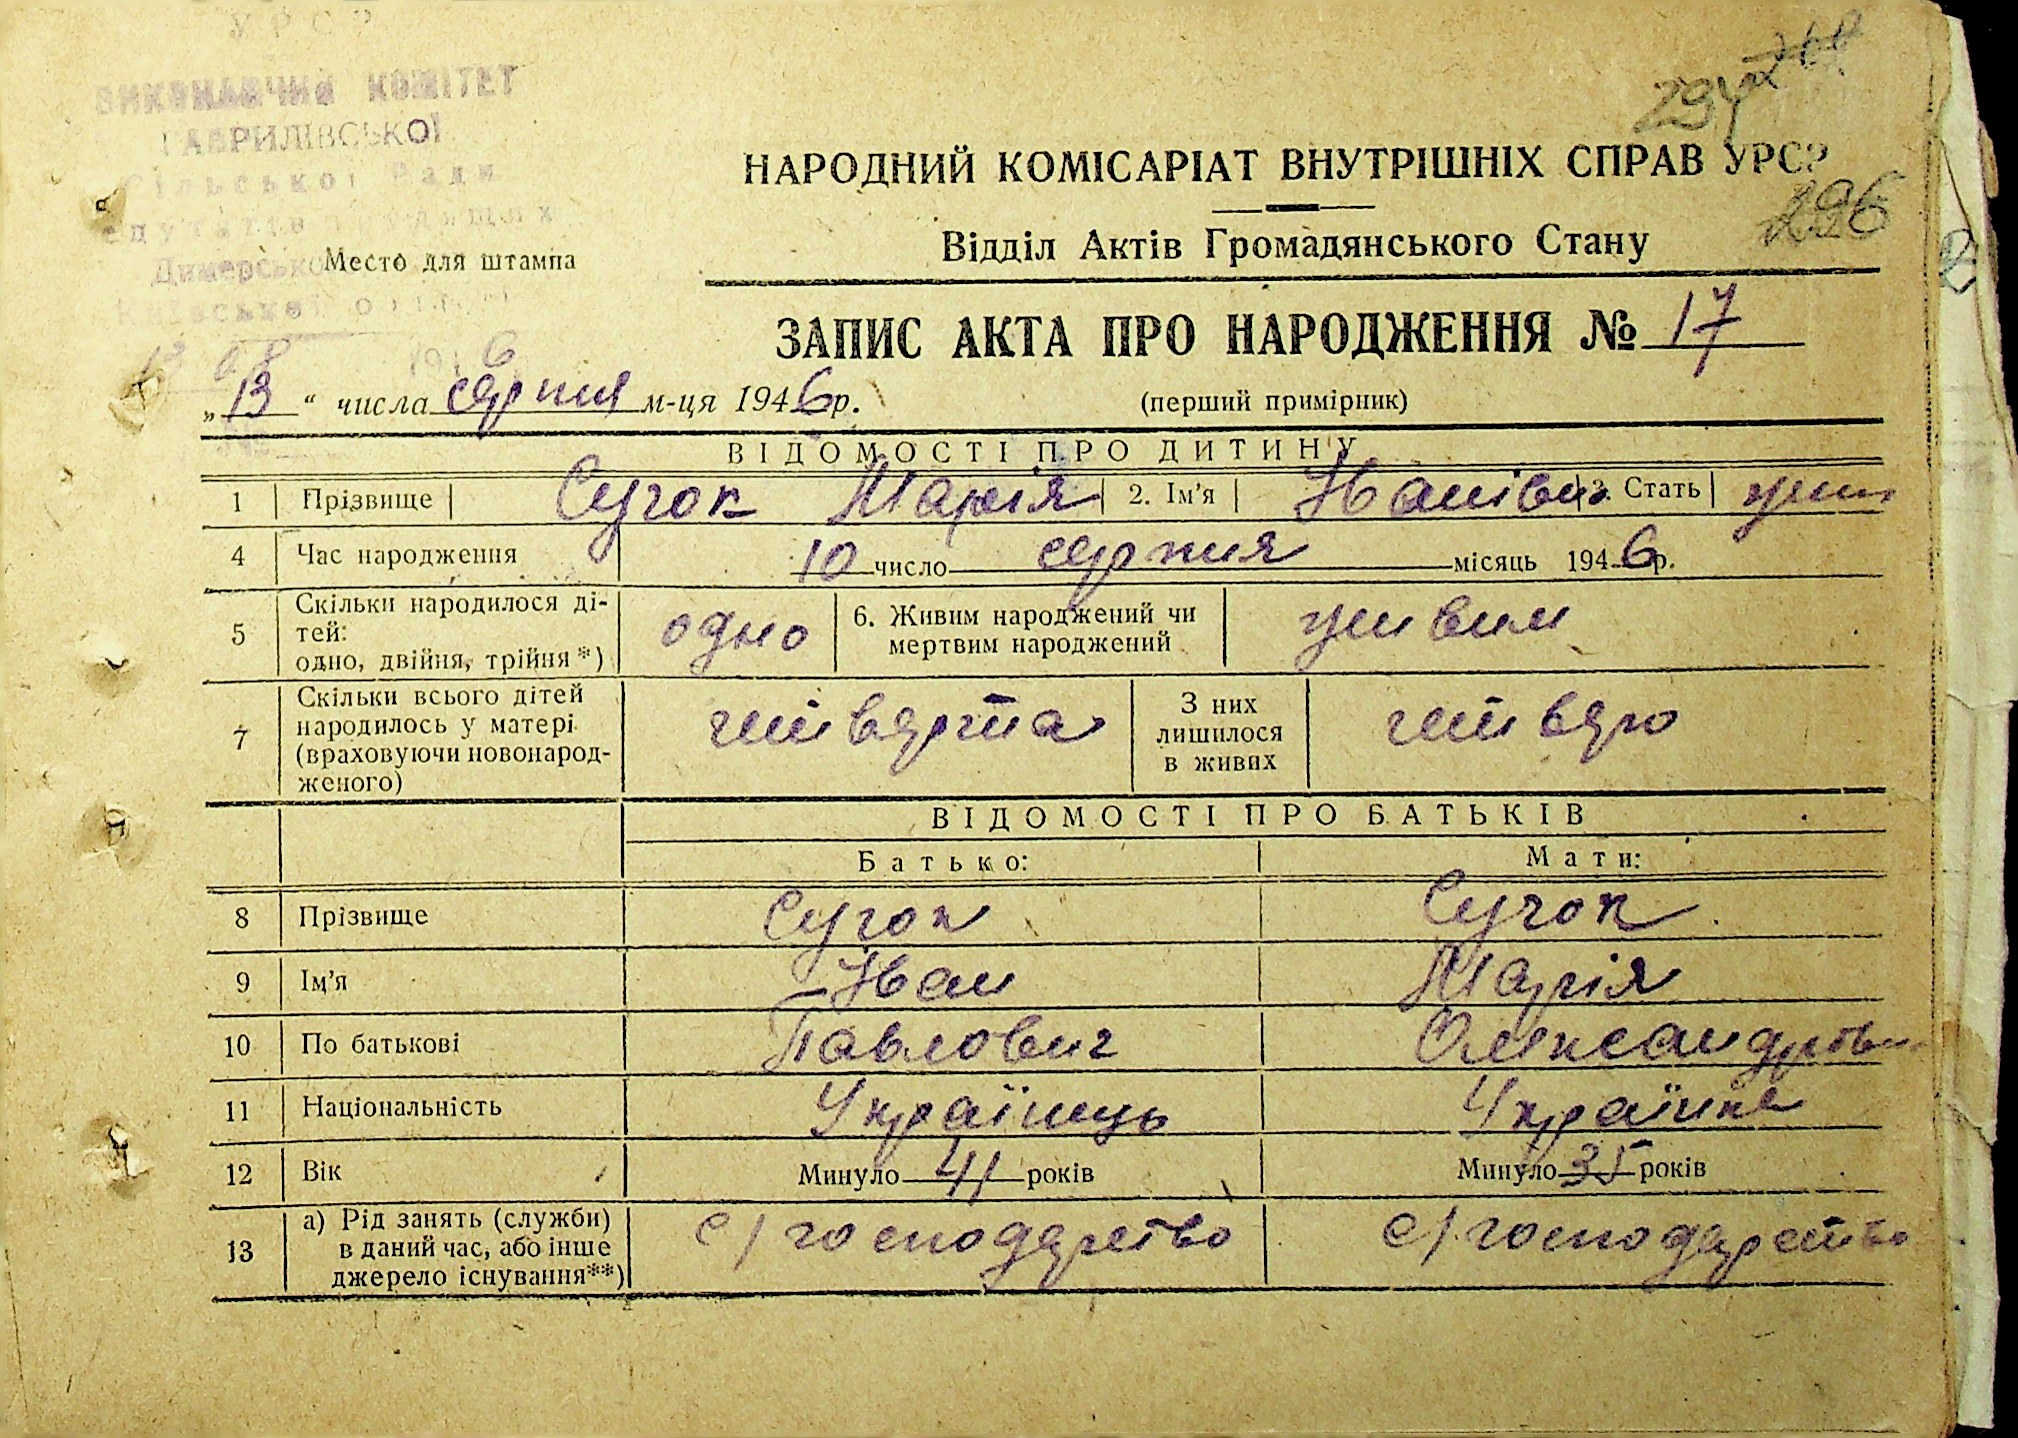 УРСР
ВИКОНАВЧИЙ КОМІТЕТ
ГАВРИЛІВСЬКОЇ
Сільської Ради
294
296
НАРОДНИЙ КОМІСАРІАТ ВНУТРІШНІХ СПРАВ УРСР
Відділ Актів Громадянського Стану
Место для штампа
ЗАПИС АКТА ПРО НАРОДЖЕННЯ № 17
„13“ числа серпня м-ця 1946 р.
(перший примірник)
ВІДОМОСТІ ПРО ДИТИНУ
1 Прізвище Сучок Марія 2. Ім'я Іванівна 3. Стать жін
4 Час народження 10 число серпня місяць 1946 р.
5 Скільки народилося ді-
тей:
одно, двійня, трійня *) одно 6. Живим народжений чи
мертвим народжений живим
7 Скільки всього дітей
народилось у матері
(враховуючи новонарод-
женого) четверта З них
лишилося
в живих четверо
ВІДОМОСТІ ПРО БАТЬКІВ
Батько: Мати:
8 Прізвище Сучок Сучок
9 Ім'я Іван Марія
10 По батькові Павлович Олександрівн
11 Національність Українець Українка
12 Вік Минуло 41 років Минуло 35 років
13 а) Рід занять (служби)
в даний час, або інше
джерело існування**) с/господарство с/господарство